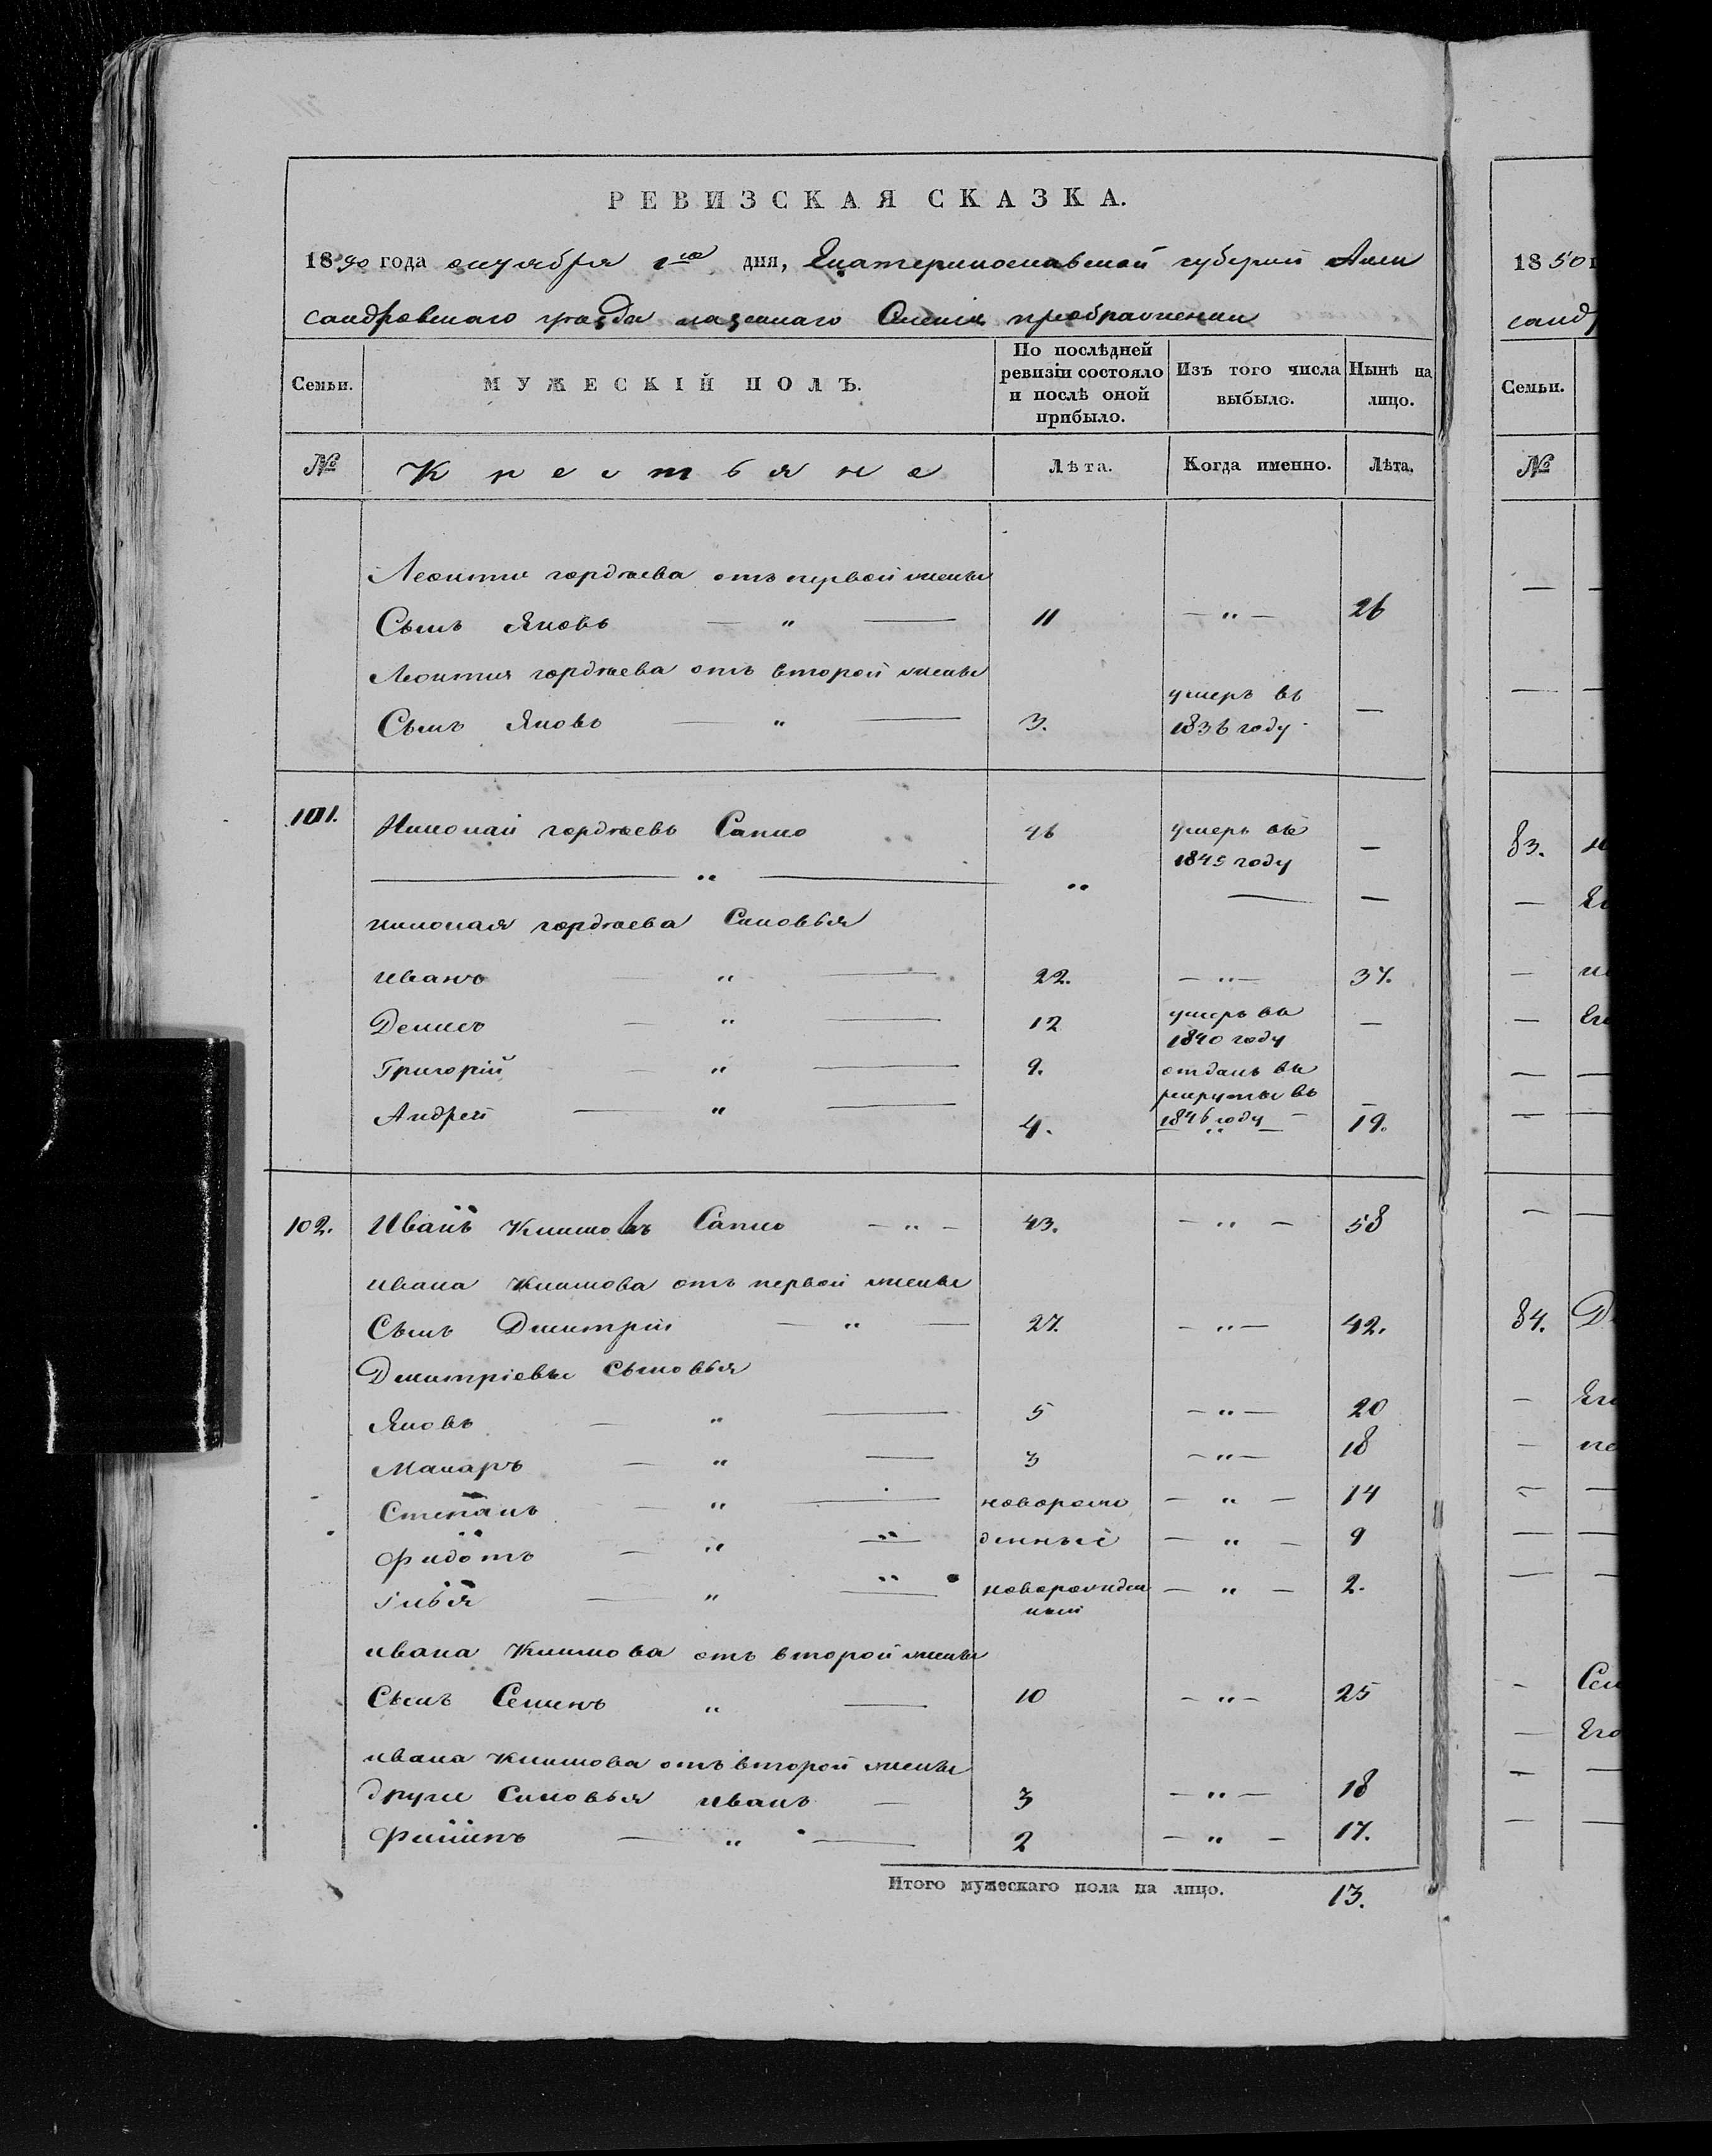 РЕВИЗСКАЯ СКАЗКА.
1850 года октября 1го дня, Екатеринославской губернии Алек
сандровскаго уезда казеннаго Селенія преображенки
Семьи.
МУЖЕСКІЙ ПОЛЪ.
По послѣдней ревизіи состояло и послѣ оной прибыло.
Изъ того числа выбыло.
Нынѣ на лицо.
№ Крестьяне Лѣта. Когда именно. Лѣта.
Леонтия гордѣева отъ первой жены
Сынъ Яковъ — " — 11 — " — 26
Леонтия гордѣева отъ второй жены
Сынъ Яковъ — " — 3. умеръ въ 1836 году —
101. Николай гордѣевъ Сапко 46 умеръ въ 1845 году —
— " — " — —
николая гордѣева Сыновья
иванъ — " — 22. — " — 37.
Денисъ — " — 12 умеръ въ 1840 году —
Григорій — " — 9. отданъ въ рекруты въ 1846 году —
Андрей — " — 4. — " — 19.
102. Иванъ Климовъ Сапко — " — 43. — " — 58
ивана Климова отъ первой жены
Сынъ Дмитрій — " — 27. — " — 42.
Дмитріевы Сыновья
Яковъ — " — 5 — " — 20
Макаръ — " — 3 — " — 18
Степанъ — " — новорож — " — 14
Фидотъ — " — денные — " — 9
Илья — " — новорожден ный — " — 2.
ивана Климова отъ второй жены
Сынъ Семенъ " — 10 — " — 25
ивана Климова отъ второй жены
другие Сыновья иванъ — 3 — " — 18
Филипъ — " — 2 — " — 17.
Итого мужескаго пола на лицо. 13.
1850 г
санд
Семьи.
№
83.
84.